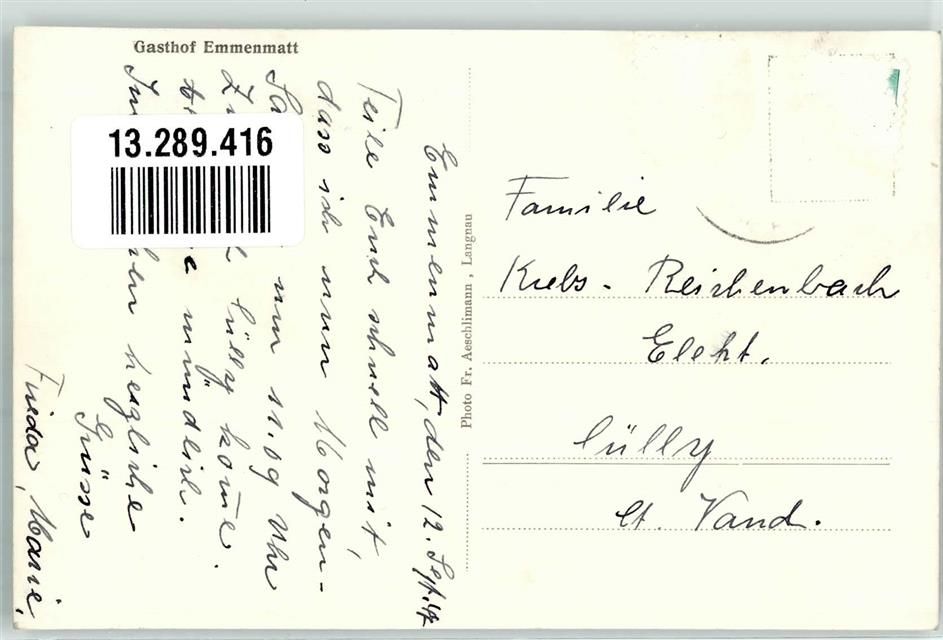 Gasthof Emmenmatt
13.289.416
Emmenmatt, den 12. Sept.
Teile Euch schnell mit,
dass ich nun Morgen-
nun 11.09 Uhr
Lülly kome.
mündlich.
herzliche
Grüsse
Frieda, Marie,
Photo Fr. Aeschlimann, Langnau
Familie
Krebs - Reichenbach
Elekt.
Lülly
Ct. Vaud.